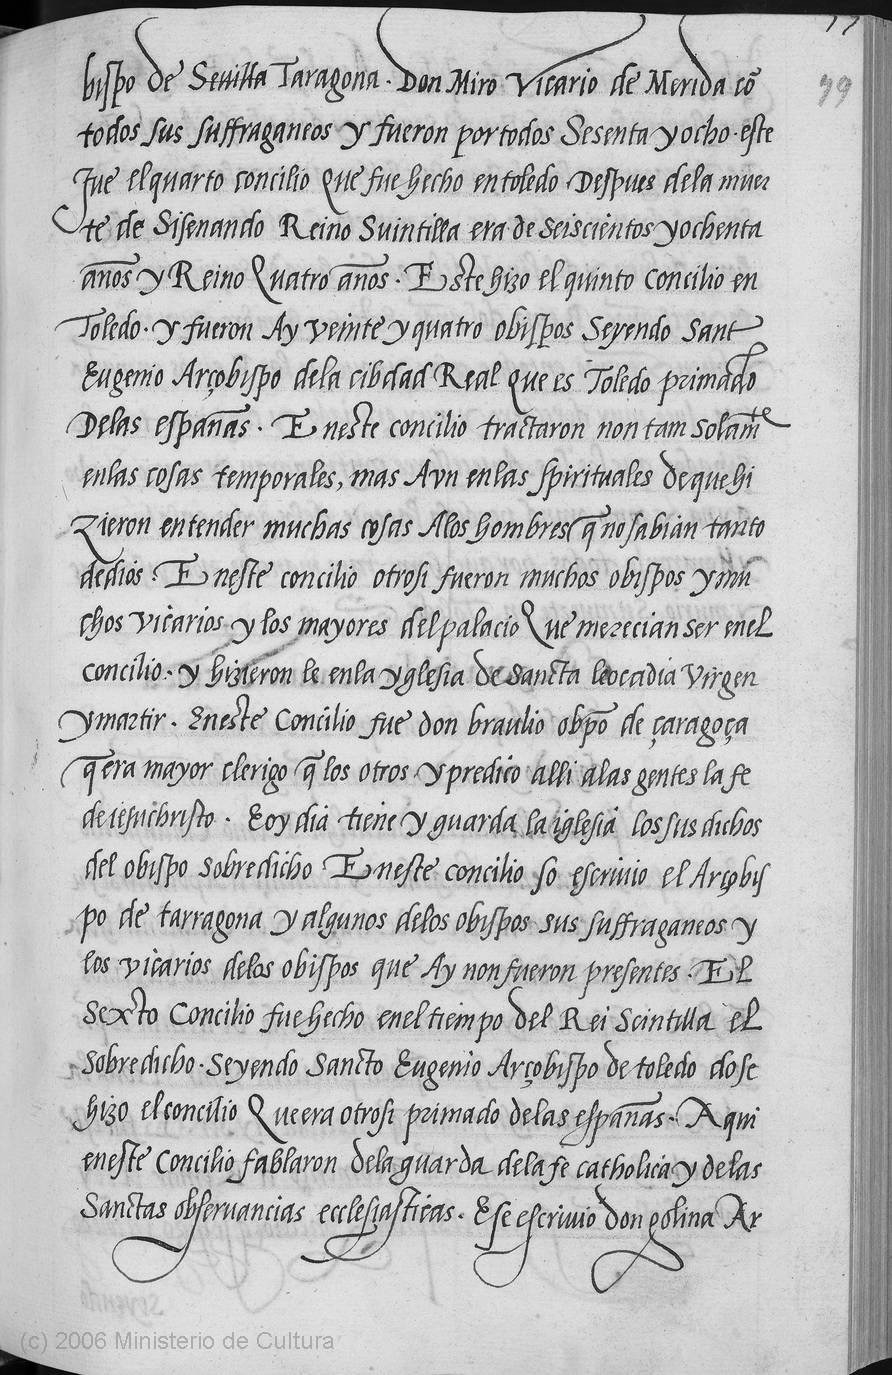 99
bispo de Sevilla Taragona. Don Miro Vicario de Merida cō
todos sus suffraganeos y fueron por todos Sesenta y ocho. este
fue el quarto concilio que fue hecho en toledo Despues de la muer
te de Sisenando Reino Suintilla era de seiscientos y ochenta
años y Reino Quatro años. Este hizo el quinto concilio en
Toledo. y fueron Ay veinte y quatro obispos Seyendo Sant
Eugenio Arçobispo de la cibdad Real que es Toledo primado
Delas españas. En este concilio tractaron non tam solamte
en las cosas temporales, mas Avn en las spirituales de que hi
zieron entender muchas cosas Alos hombres q̄ no sabian tanto
de dios. En este concilio otrosi fueron muchos obispos y mu
chos vicarios y los mayores del palacio Que merecian ser en el
concilio. y hizieron le en la yglesia de Sancta leocadia Virgen
y martir. En este Concilio fue don braulio obpō de çaragoça
q̄ era mayor clerigo q̄ los otros y predico alli a las gentes la fe
de iesuchristo. Eoy dia tiene y guarda la iglesia los sus dichos
del obispo sobredicho. En este concilio so escrivio el Arçobis
po de tarragona y algunos delos obispos sus suffraganeos y
los vicarios delos obispos que Ay non fueron presentes. El
Sexto Concilio fue hecho en el tiempo del Rei Scintilla el
sobredicho. Seyendo Sancto Eugenio Arçobispo de toledo do se
hizo el concilio Que era otrosi primado de las españas. Aqui
en este Concilio fablaron de la guarda de la fe catholica y de las
Sanctas observancias ecclesiasticas. E se escrivio don golina Ar
(c) 2006 Ministerio de Cultura